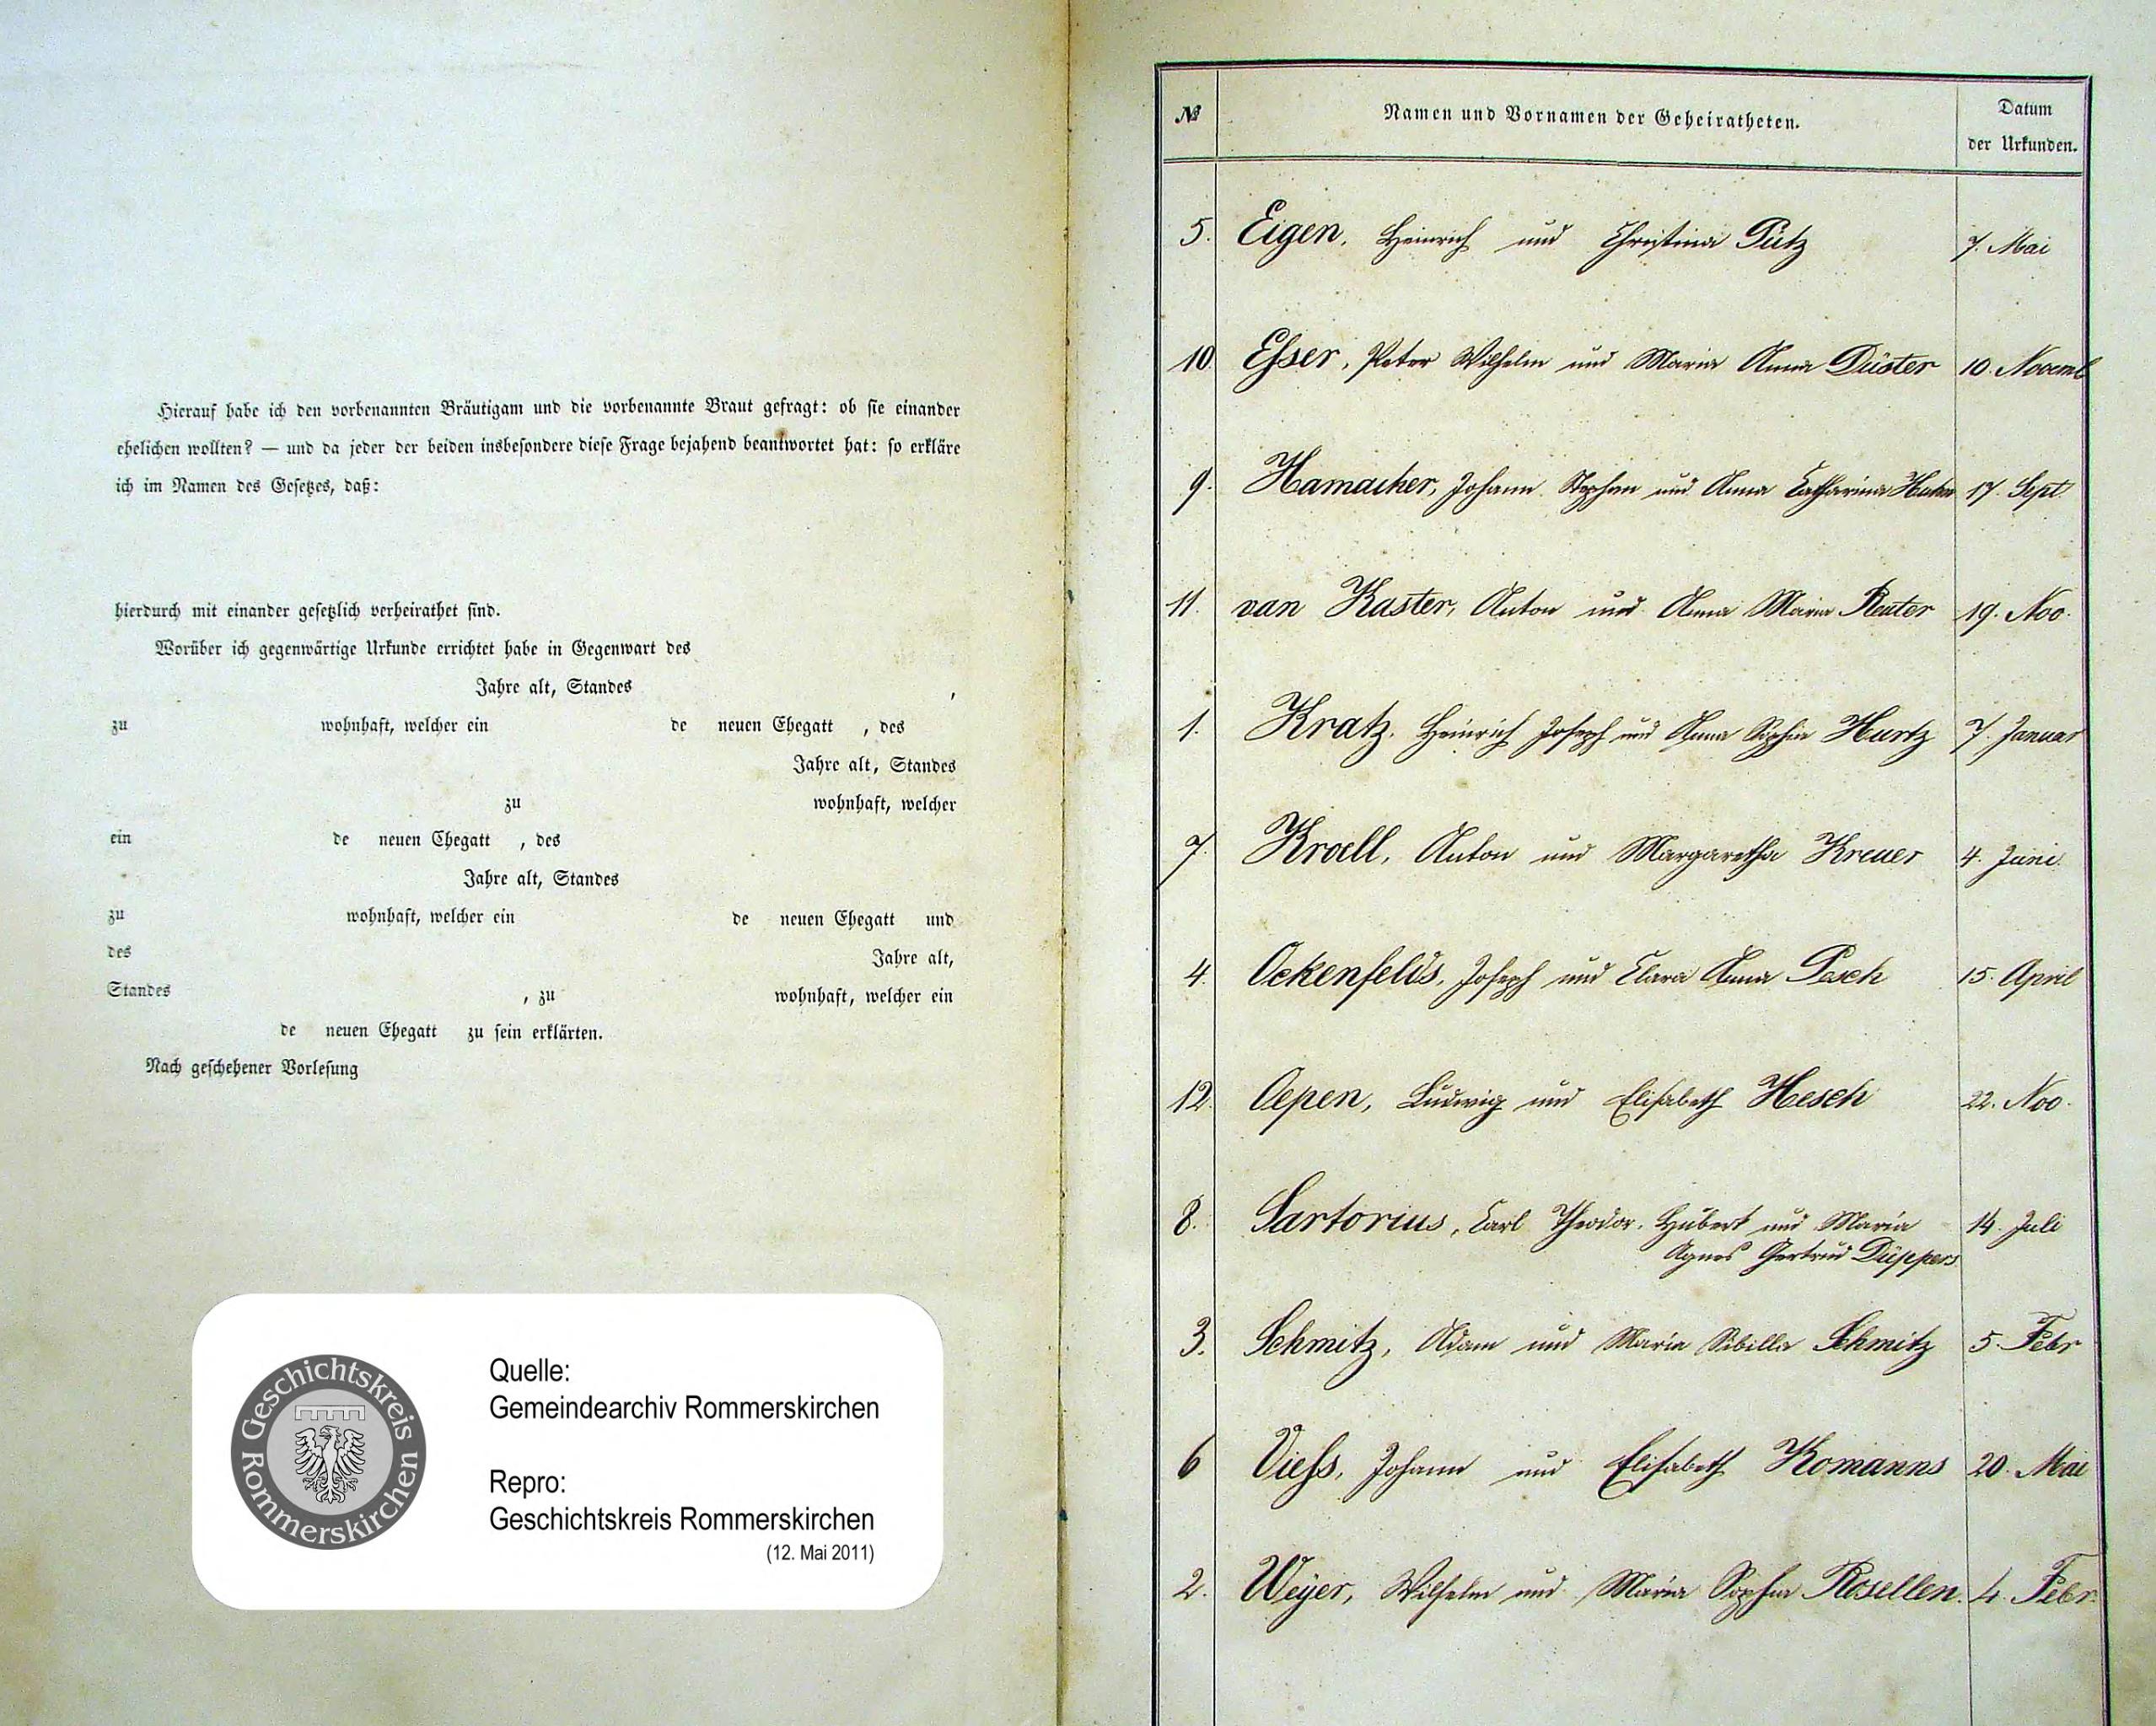 Hierauf habe ich den vorbenannten Bräutigam und die vorbenannte Braut gefragt: ob sie einander
ehelichen wollten? — und da jeder der beiden insbesondere diese Frage bejahend beantwortet hat: so erkläre
ich im Namen des Gesetzes, daß:
hierdurch mit einander gesetzlich verheirathet sind.
Worüber ich gegenwärtige Urkunde errichtet habe in Gegenwart des
Jahre alt, Standes ,
zu wohnhaft, welcher ein de neuen Ehegatt , des
Jahre alt, Standes
zu wohnhaft, welcher
ein de neuen Ehegatt , des
Jahre alt, Standes
zu wohnhaft, welcher ein de neuen Ehegatt und
des Jahre alt,
Standes , zu wohnhaft, welcher ein
de neuen Ehegatt zu sein erklärten.
Nach geschehener Vorlesung
Geschichtskreis Rommerskirchen
Quelle:
Gemeindearchiv Rommerskirchen
Repro:
Geschichtskreis Rommerskirchen
(12. Mai 2011)
№ Namen und Vornamen der Geheiratheten. Datum
der Urkunden.
5. Eigen, Heinrich und Christina Pütz 7. Mai
10. Esser, Peter Wilhelm und Maria Anna Düster 10. Novemb
9. Hamacher, Johann Stephan und Anna Catharina 17. Sept
11. van Kaster, Anton und Anna Maria Reuter 19. Nov.
1. Kratz, Heinrich Joseph und Anna Sophia Hurtz 7. Januar
7. Kroell, Anton und Margaretha Kreuer 4. Juni
4. Ockenfels, Joseph und Clara Anna Pesch 15. April
12. Oepen, Ludwig und Elisabeth Hesch 22. Nov.
8. Sartorius, Carl Theodor Hubert und Maria 14. Juli
Agnes Gertrud Düppers
3. Schmitz, Adam und Maria Sibilla Schmitz 5. Febr
6 Viehs, Johann und Elisabeth Komanns 20. Mai
2. Weyer, Wilhelm und Maria Sophia Rosellen. 4. Febr.